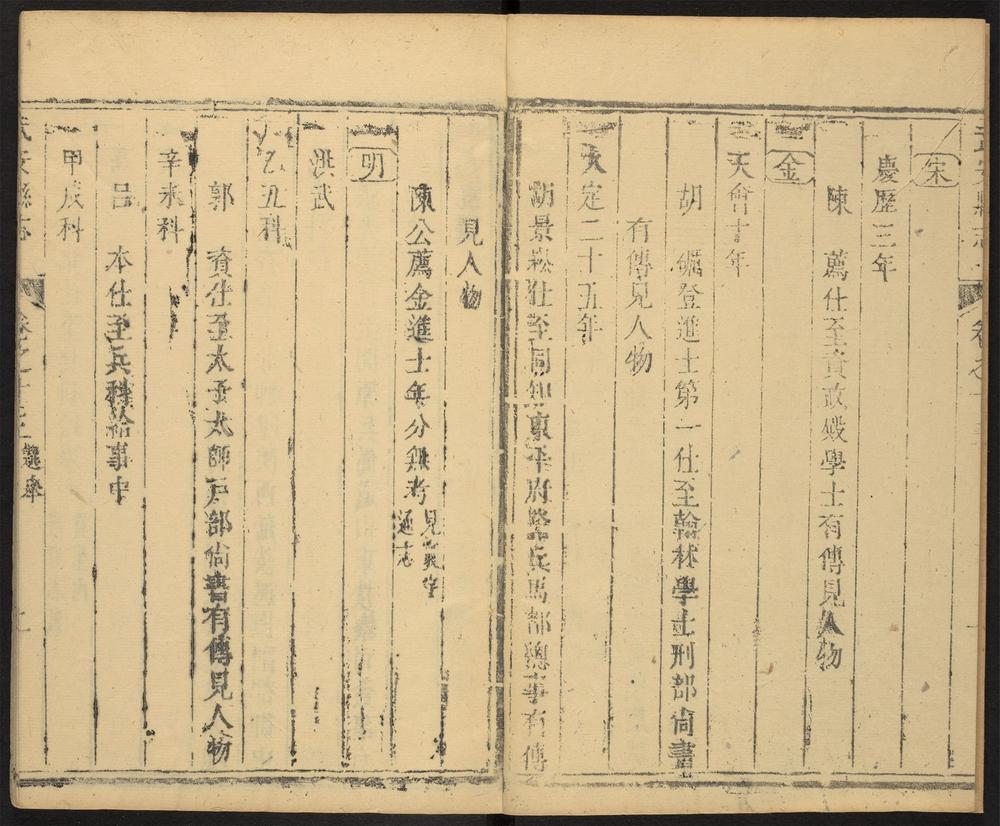 宋
慶歷三年
陳 薦仕至資政殿學士有傳見人物
金
天會十年
胡 礪登進士第一仕至翰林學士刑部尙書
有傳見人物
大定二十五年
胡景崧仕至同知東平府擧兵馬都總事有傳
見人物
陳公薦金進士年分無考見
通志
明
洪武
乙丑科
郭 資仕至太子太師戸部尙書有傳見人物
辛未科
呂 本仕至兵科給事中
甲辰科
選舉